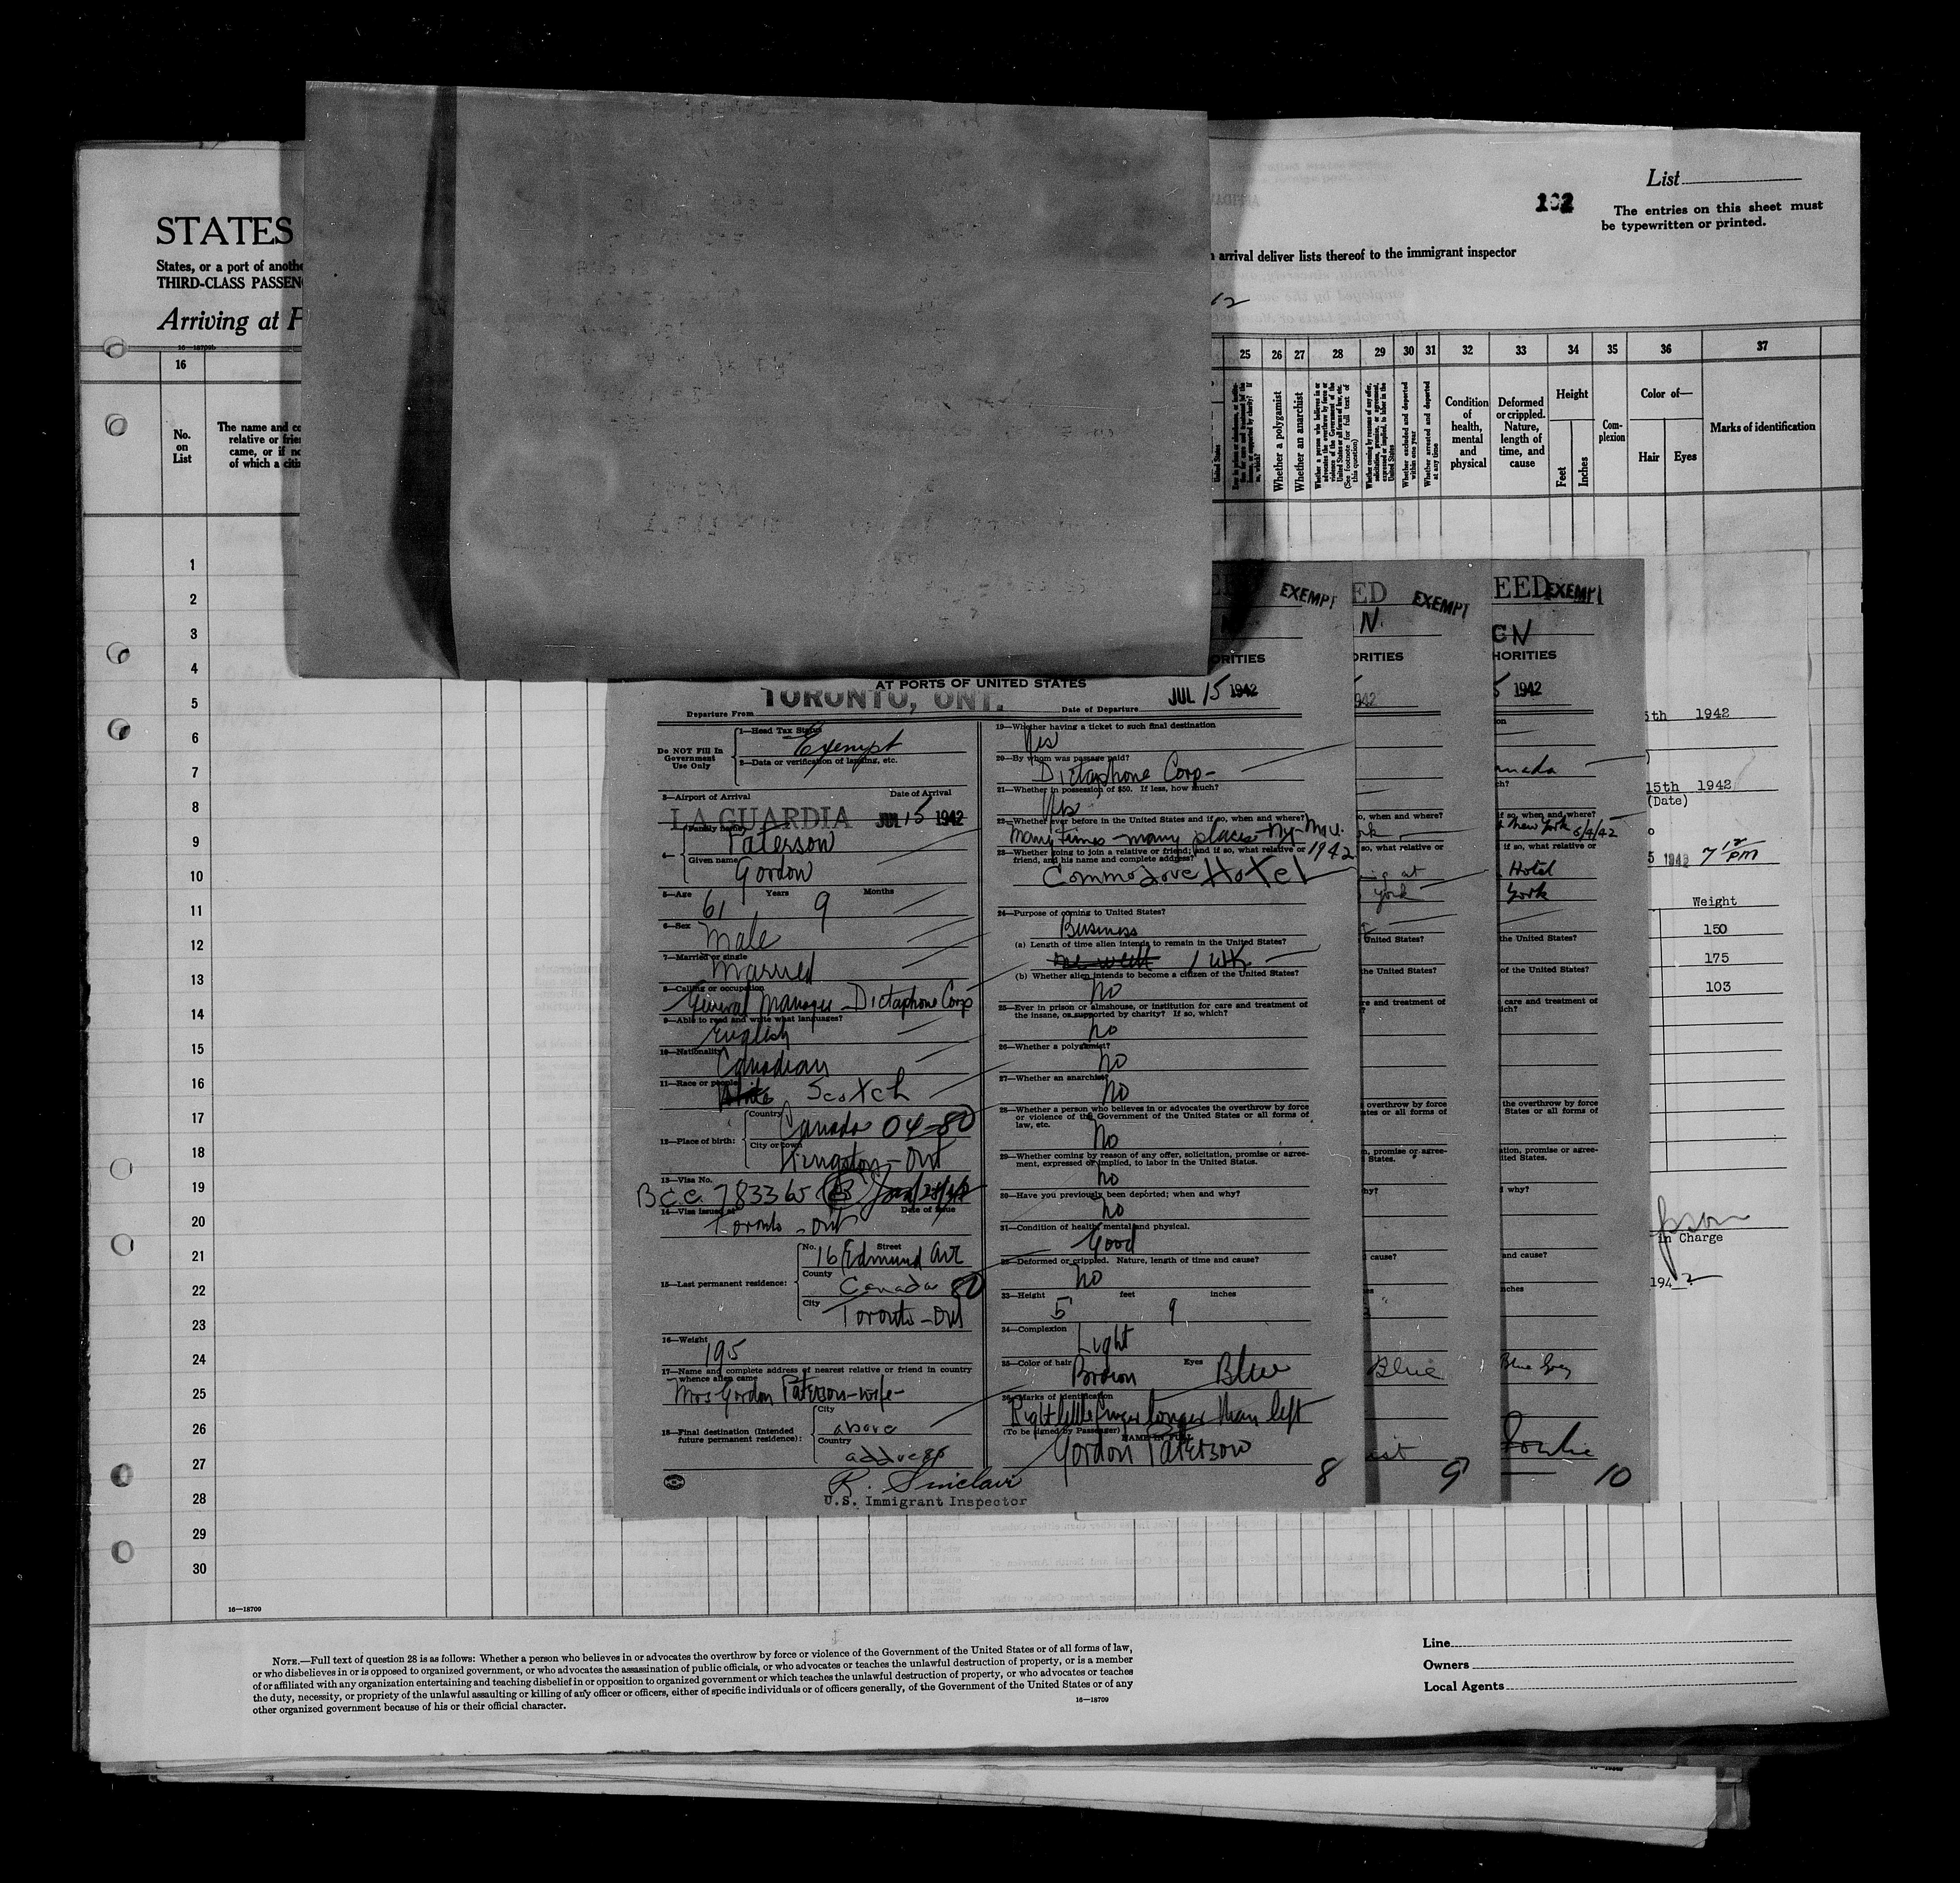 List
102
The entries on this sheet must
be typewritten or printed.
STATES
States, or a port of anothe
THIRD-CLASS PASSEN
arrival deliver lists thereof to the immigrant inspector
Arriving at P
16—18709b
16
25 26 27 28 29 30 31 32 33 34 35 36 37
No.
on
List
The name and co
relative or frie
came, or if no
of which a citi
United States
Whether a polygamist
Whether an anarchist
(See footnote for full text of this question)
Whether excluded and deported within one year
Whether arrested and deported at any time
Condition
of
health,
mental
and
physical
Deformed
or crippled.
Nature,
length of
time, and
cause
Height
Feet
Inches
Com-
plexion
Color of—
Hair
Eyes
Marks of identification
1
2
3
4
5
6
7
8
9
10
11
12
13
14
15
16
17
18
19
20
21
22
23
24
25
26
27
28
29
30
16—18709
AT PORTS OF UNITED STATES
Departure From TORONTO, ONT. Date of Departure JUL 15 1942
Do NOT Fill In
Government
Use Only
1—Head Tax Status
Exempt
2—Data or verification of landing, etc.
3—Airport of Arrival Date of Arrival
LA GUARDIA JUL 15 1942
4—
Family name
Paterson
Given name
Gordon
5—Age Years Months
61 9
6—Sex
Male
7—Married or single
Married
8—Calling or occupation
General Manager - Dictaphone Corp
9—Able to read and write what languages?
English
10—Nationality
Canadian
11—Race or people
White Scotch
12—Place of birth:
Country
Canada 04-80
City or town
Kingston - Ont
13—Visa No.
B.C.C. 783365
14—Visa issued at Date of Issue
Toronto - Ont
15—Last permanent residence:
No. Street
16 Edmund Ave
County
Canada 80
City
Toronto - Ont
16—Weight
195
17—Name and complete address of nearest relative or friend in country
whence alien came
Mrs Gordon Paterson - wife -
18—Final destination (Intended
future permanent residence):
City
above
Country
address
R. Sinclair
U.S. Immigrant Inspector
19—Whether having a ticket to such final destination
Yes
20—By whom was passage paid?
Dictaphone Corp -
21—Whether in possession of $50. If less, how much?
Yes
22—Whether ever before in the United States and if so, when and where?
Many times - many places - Ny -
1942
23—Whether going to join a relative or friend; and if so, what relative or
friend, and his name and complete address?
Commodore Hotel
24—Purpose of coming to United States?
Business
(a) Length of time alien intends to remain in the United States?
one week 1 wk
(b) Whether alien intends to become a citizen of the United States?
No
25—Ever in prison or almshouse, or institution for care and treatment of
the insane, or supported by charity? If so, which?
No
26—Whether a polygamist?
No
27—Whether an anarchist?
No
28—Whether a person who believes in or advocates the overthrow by force
or violence of the Government of the United States or all forms of
law, etc.
No
29—Whether coming by reason of any offer, solicitation, promise or agree-
ment, expressed or implied, to labor in the United States.
No
30—Have you previously been deported; when and why?
No
31—Condition of health, mental and physical.
Good
32—Deformed or crippled. Nature, length of time and cause?
No
33—Height feet inches
5 9
34—Complexion
Light
35—Color of hair Eyes
Brown Blue
36—Marks of identification
Right little finger longer than left
(To be signed by Passenger) NAME IN FULL
Gordon Paterson
8
EXEMPT
ORITIES
ED
EXEMPT
N.
ORITIES
942
o, when and where?
so, what relative or
ing at
york
United States?
the United States?
re and treatment of
overthrow by force
tes or all forms of
n, promise or agree-
States.
hy?
cause?
Blue
ist
9
EED
EXEMPT
GN
HORITIES
5 1942
anada
ch?
f so, when and where?
New York 6/4/42
if so, what relative or
Hotel
York
the United States?
of the United States?
care and treatment of
ich?
the overthrow by force
States or all forms of
ation, promise or agree-
ited States.
why?
and cause?
nches
Blue Grey
10
5th 1942
15th 1942
(Date)
5 1942 7 12 PM
Weight
150
175
103
in Charge
1942
NOTE.—Full text of question 28 is as follows: Whether a person who believes in or advocates the overthrow by force or violence of the Government of the United States or of all forms of law,
or who disbelieves in or is opposed to organized government, or who advocates the assassination of public officials, or who advocates or teaches the unlawful destruction of property, or is a member
of or affiliated with any organization entertaining and teaching disbelief in or opposition to organized government or which teaches the unlawful destruction of property, or who advocates or teaches
the duty, necessity, or propriety of the unlawful assaulting or killing of any officer or officers, either of specific individuals or of officers generally, of the Government of the United States or of any
other organized government because of his or their official character.
16—18709
Line
Owners
Local Agents